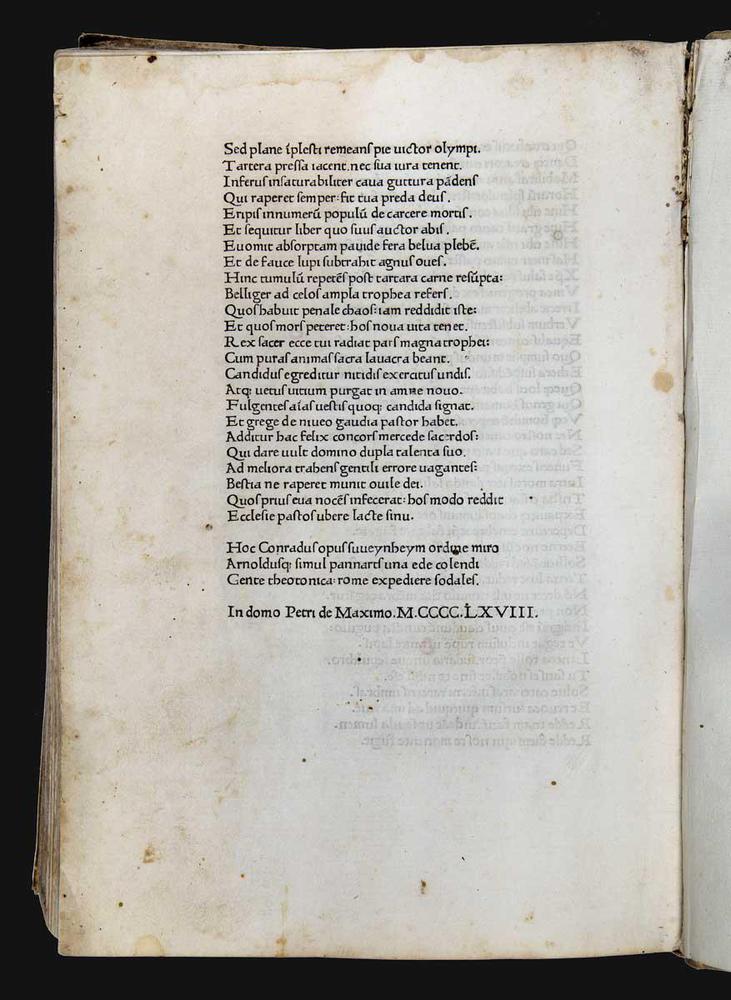 Sed plane ĩplesti remeans pie uictor olympi.
Tartera pressa iacent. nec sua iura tenent.
Inferus insaturabiliter caua guttura pãdens
Qui raperet semper: fit tua preda deus.
Eripis innumerũ populũ de carcere mortis.
Et sequitur liber quo suus auctor abis.
Euomit absorptam pauide fera belua plebẽ.
Et de fauce lupi subtrahit agnus oues.
Hinc tumulũ repetẽs post tartara carne resũpta:
Belliger ad celos ampla trophea refers.
Quos habuit penale chaos: iam reddidit iste:
Et quos mors peteret: hos noua uita tenet.
Rex sacer ecce tui radiat pars magna trophei:
Cum puras animas sacra lauacra beant.
Candidus egreditur nitidis exercitus undis.
Atq; uetus uitium purgat in amne nouo.
Fulgentes aĩas uestis quoq; candida signat.
Et grege de niueo gaudia pastor habet.
Additur hac felix concors mercede sacerdos:
Qui dare uult domino dupla talenta suo.
Ad meliora trahens gentili errore uagantes:
Bestia ne raperet munit ouile dei.
Quos prius eua nocẽs infecerat: hos modo reddit
Ecclesie pastos ubere lacte sinu.
Hoc Conradus opus suueynheym ordine miro
Arnoldusq; simul pannarts una ede colendi
Gente theotonica: rome expediere sodales.
In domo Petri de Maximo. M.CCCC.LXVIII.